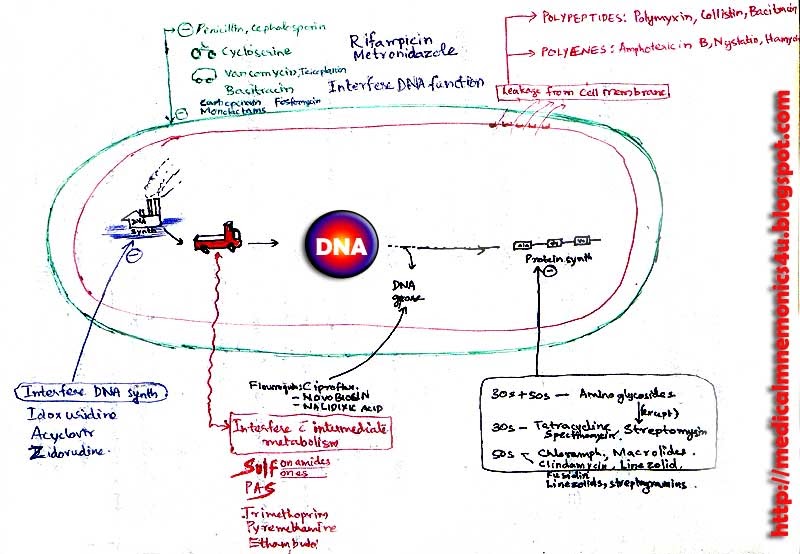 Penicillin, Cephalosporin
Cycloserine
Vancomycin, Teicoplanin
Basitracin
Carbepenem Fosfomycin
Monobactams
Rifampicin
Metronidazole
Interfere DNA function
POLYPEPTIDES: Polymyxin, Collistin, Bacitracin
POLYENES: Amphotericin B, Nystatin, Hamyc
Leakage from Cell membrane
DNA
Synth
DNA
DNA
gyrase
Protein synth
Interfere DNA synth
Idoxusidine
Acyclovir
Zidovudine.
Flouroquin: Ciproflox.
- NOVOBIOCIN
- NALIDIXIC ACID
Interfere c̄ intermediate
metabolism
Sulfonamides
ones
PAS
Trimethoprim
Pyremethamine
Ethambutol
30s + 50s — Aminoglycosides
(except)
30s - Tatracycline, Streptomysin
Specthomycin
50s Chloramph, Macrolides.
Clindamycin, Linezolid,
Fusidin
Linezolids, streptogramins.
http://medicalmnemonics4u.blogspot.com